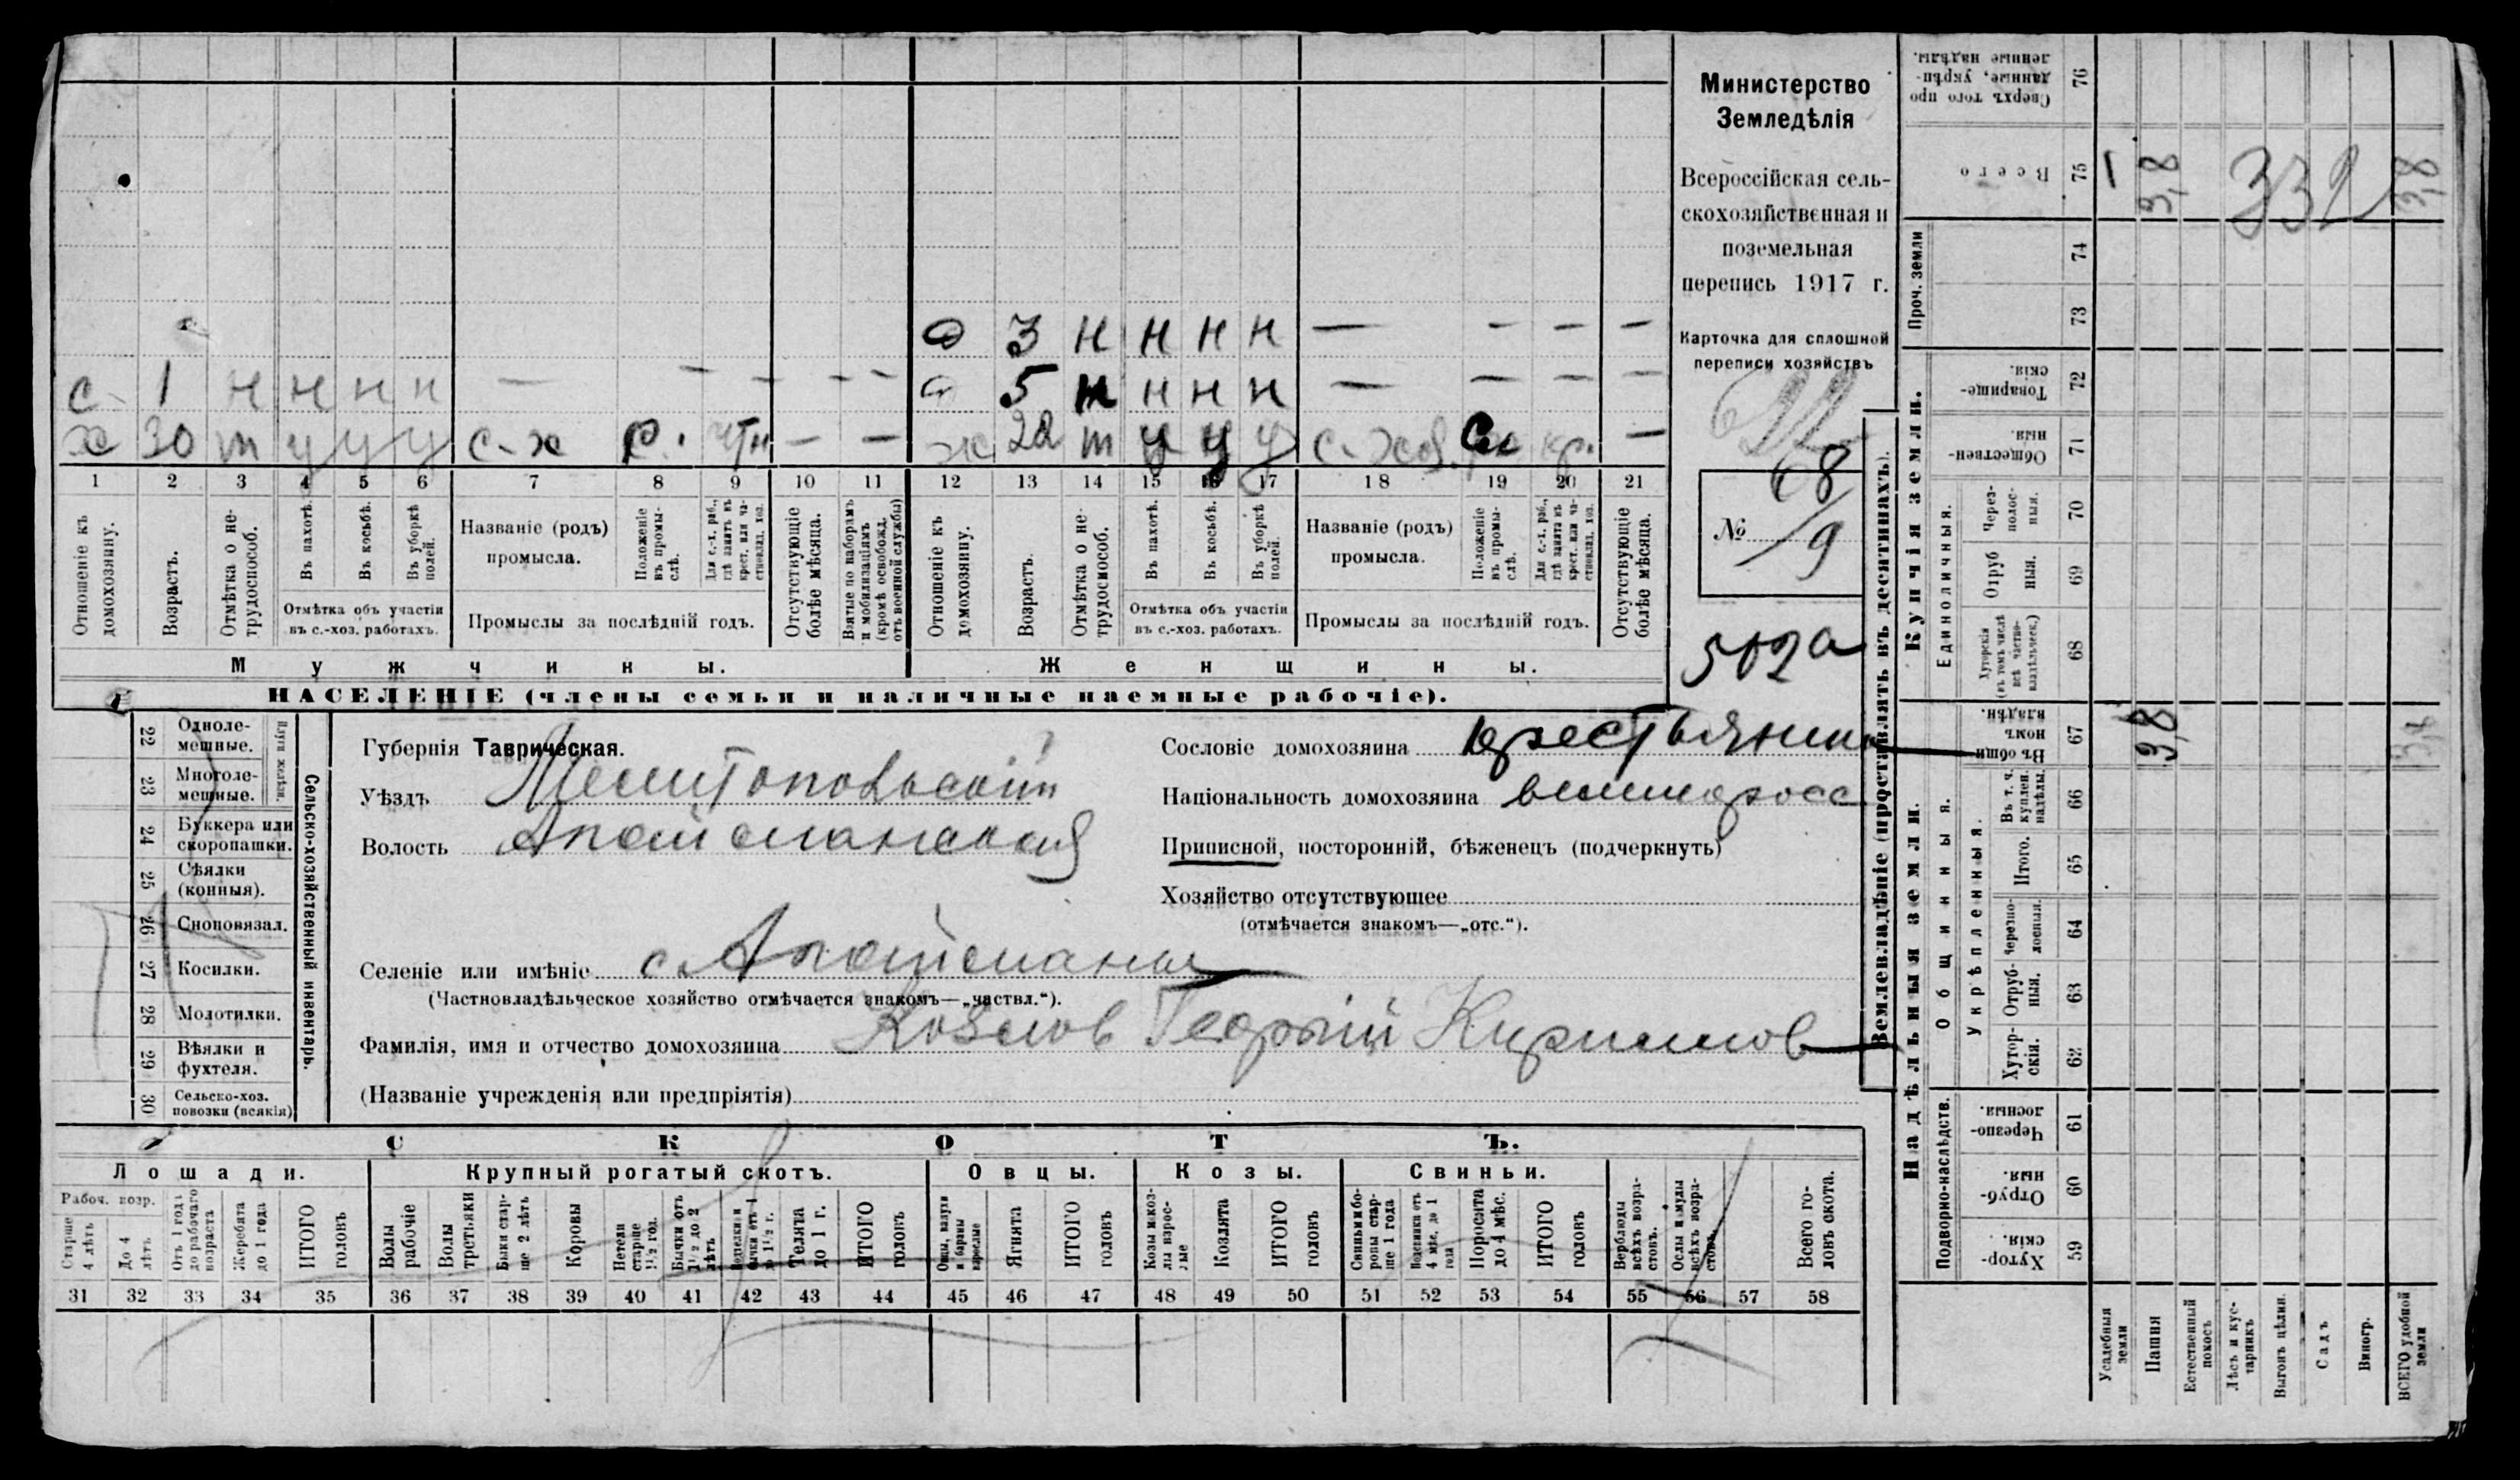 о 3 н н н н — — — —
с. 1 н н н н — — — — —
о 5 н н н н — — — —
х 30 т у у у с-х р. — —
ж 22 т у у у кр. —
1 2 3 4 5 6 7 8 9 10 11 12 13 14 15 16 17 18 19 20 21
Отношеніе къ домохозяину.
Возрастъ.
Отмѣтка о не-
трудоспособ.
Въ пахотѣ.
Въ косьбѣ.
Въ уборкѣ
полей.
Отмѣтка объ участіи
въ с.-хоз. работахъ.
Названіе (родъ)
промысла.
Положеніе
въ промы-
слѣ.
Для с.-х. раб.,
гдѣ занятъ въ
крест. или ча-
стновлад. хоз.
Промыслы за послѣдній годъ.
Отсутствующіе
болѣе мѣсяца.
Взятые по наборамъ
и мобилизаціямъ
(кромѣ освобожд.
отъ военной службы)
Отношеніе къ
домохозяину.
Возрастъ.
Отмѣтка о не-
трудоспособ.
Въ пахотѣ.
Въ косьбѣ.
Въ уборкѣ
полей.
Отмѣтка объ участіи
въ с.-хоз. работахъ.
Названіе (родъ)
промысла.
Положеніе
въ промы-
слѣ.
Для с.-х. раб.,
гдѣ занятъ въ
крест. или ча-
стновлад. хоз.
Промыслы за послѣдній годъ.
Отсутствующіе
болѣе мѣсяца.
Мужчины.
Женщины.
НАСЕЛЕНІЕ (члены семьи и наличные наемные рабочіе).
Министерство
Земледѣлія
Всероссійская сель-
скохозяйственная и
поземельная
перепись 1917 г.
Карточка для сплошной
переписи хозяйствъ
68
№ 9
502а
22 Одноле-
мешные.
23 Многоле-
мешные.
Плуги желѣзн.
24 Буккера или
скоропашки.
25 Сѣялки
(конныя).
26 Сноповязал.
27 Косилки.
28 Молотилки.
29 Вѣялки и
фухтеля.
30 Сельско-хоз.
повозки (всякія)
Сельско-хозяйственный инвентарь.
Губернія Таврическая.
Уѣздъ Мелитопольскій
Волость
Селеніе или имѣніе с.
(Частновладѣльческое хозяйство отмѣчается знакомъ—„частвл.“).
Фамилія, имя и отчество домохозяина Козлов Георгій Кирилов
(Названіе учрежденія или предпріятія)
Сословіе домохозяина крестьянин
Національность домохозяина великоросс
Приписной, посторонній, бѣженецъ (подчеркнуть)
Хозяйство отсутствующее
(отмѣчается знакомъ—„отс.“).
СКОТЪ.
Лошади. Крупный рогатый скотъ. Овцы. Козы. Свиньи.
Рабоч. возр.
Старше
4 лѣтъ
До 4
лѣтъ
Отъ 1 года
до рабочаго
возраста
Жеребята
до 1 года
ИТОГО
головъ
Волы
рабочіе
Волы
третьяки
Быки стар-
ше 2 лѣтъ
Коровы
Нетели
старше
1½ год.
Бычки отъ
1½ до 2
лѣтъ
Телята
до 1 г.
ИТОГО
головъ
Ягнята
ИТОГО
головъ
Козлята
ИТОГО
головъ
Поросята
до 4 мѣс.
ИТОГО
головъ
Верблюды
всѣхъ возра-
стовъ.
Ослы и мулы
всѣхъ возра-
стовъ.
Всего го-
ловъ скота.
31 32 33 34 35 36 37 38 39 40 41 42 43 44 45 46 47 48 49 50 51 52 53 54 55 56 57 58
Землевладѣніе (проставлять въ десятинахъ).
Сверхъ того про
данные, укрѣп-
ленные надѣлы.
76
Всего 75 1 3,8 332 3,8
Проч. земли
74
73
Купчія земли.
Товарище-
скія. 72
Обществен-
ныя. 71
Единоличныя.
Через-
полос-
ныя. 70
Отруб
ныя. 69
Хуторскія
(въ томъ числѣ
всѣ частно-
владѣльческ.) 68
Надѣльныя земли.
Общинныя.
Въ общин
номъ
владѣн. 67 3,8
Укрѣпленныя.
Въ т. ч.
куплен.
надѣлы. 66
Итого. 65
Черезпо-
лосныя. 64
Отруб-
ныя. 63
Хутор-
скія. 62
Подворно-наслѣдств.
Черезпо-
лосныя. 61
Отруб-
ныя. 60
Хутор-
скія. 59
Усадебныя
земли
Пашня
Естественный
покосъ
Лѣсъ и кус-
тарникъ
Выгонъ цѣлин.
Садъ
Виногр.
ВСЕГО удобной
земли